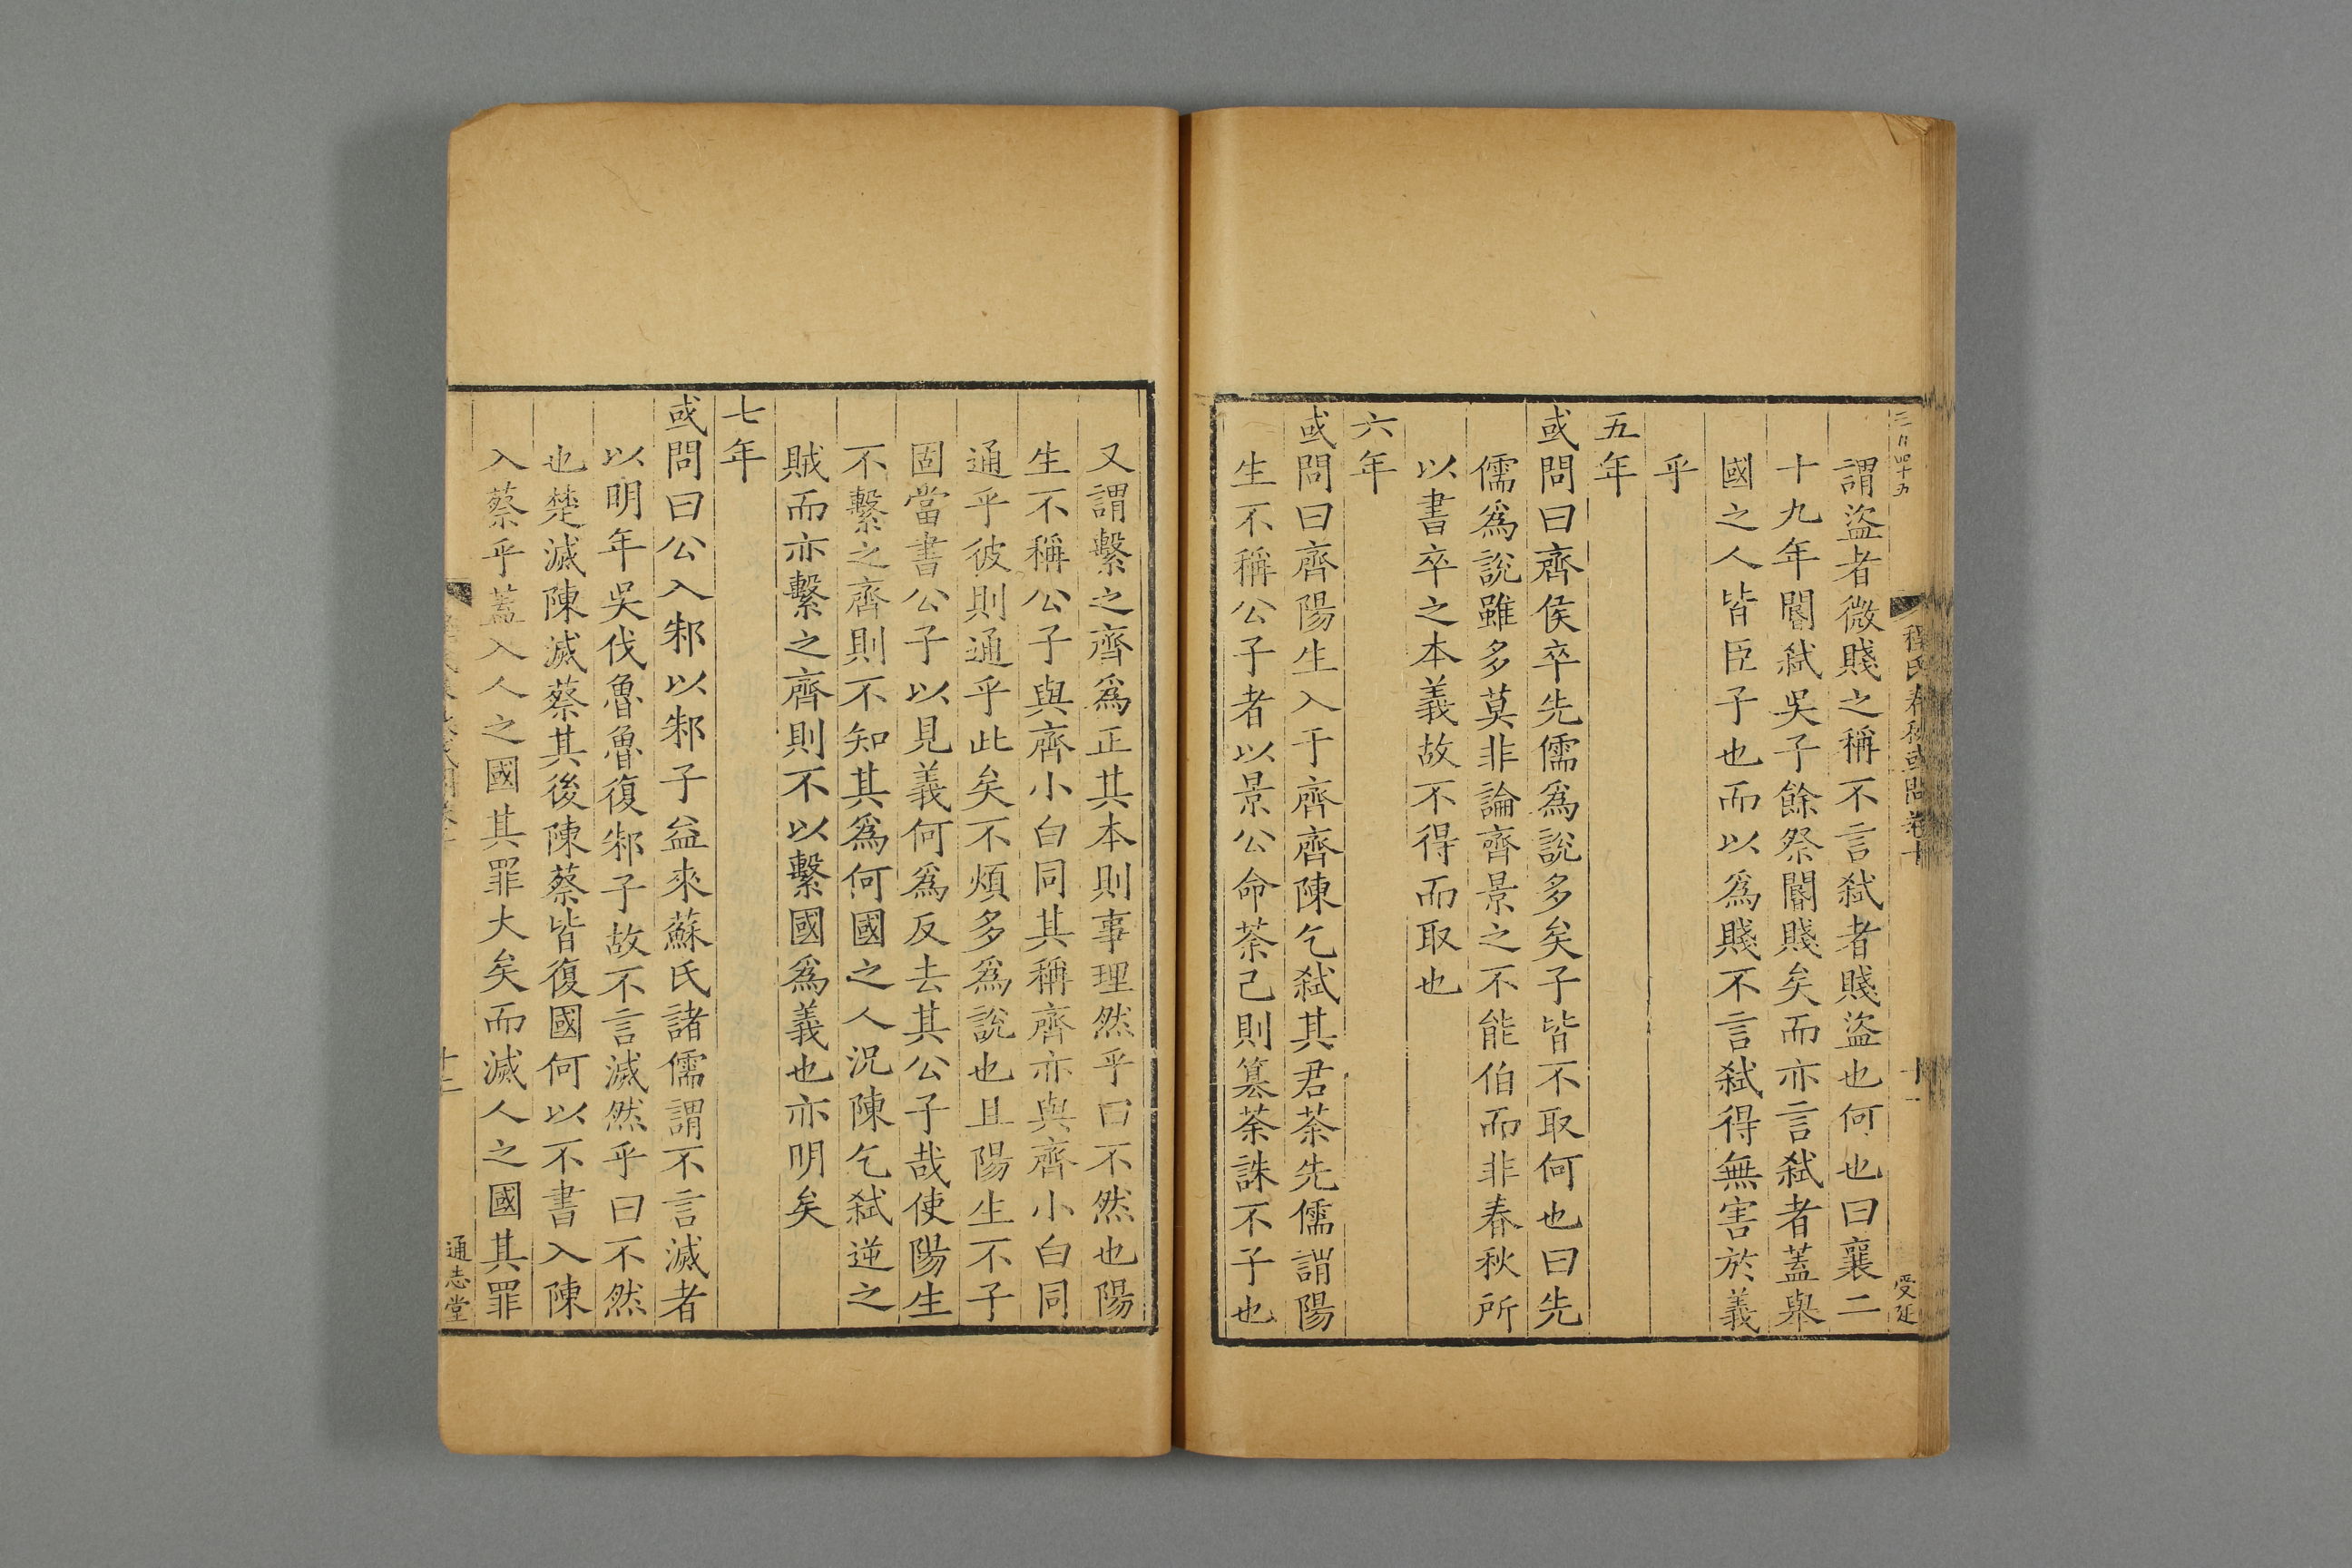 程氏春秋或問卷十
十一
受延
謂盜者微賤之稱不言弑者賤盜也何也曰襄二
十九年閽弑吳子餘祭閽賤矣而亦言弑者蓋舉
國之人皆臣子也而以為賤不言弑得無害於義
乎
五年
或問曰齊侯卒先儒為說多矣子皆不取何也曰先
儒為說雖多莫非論齊景之不能伯而非春秋所
以書卒之本義故不得而取也
六年
或問曰齊陽生入于齊齊陳乞弑其君荼先儒謂陽
生不稱公子者以景公命荼己則篡荼誅不子也
又謂繫之齊為正其本則事理然乎曰不然也陽
生不稱公子與齊小白同其稱齊亦與齊小白同
通乎彼則通乎此矣不煩多為說也且陽生不子
固當書公子以見義何為反去其公子哉使陽生
不繫之齊則不知其為何國之人況陳乞弑逆之
賊而亦繫之齊則不以繫國為義也亦明矣
七年
或問曰公入邾以邾子益來蘇氏諸儒謂不言滅者
以明年吳伐魯魯復邾子故不言滅然乎曰不然
也楚滅陳滅蔡其後陳蔡皆復國何以不書入陳
入蔡乎蓋入人之國其罪大矣而滅人之國其罪
通志堂